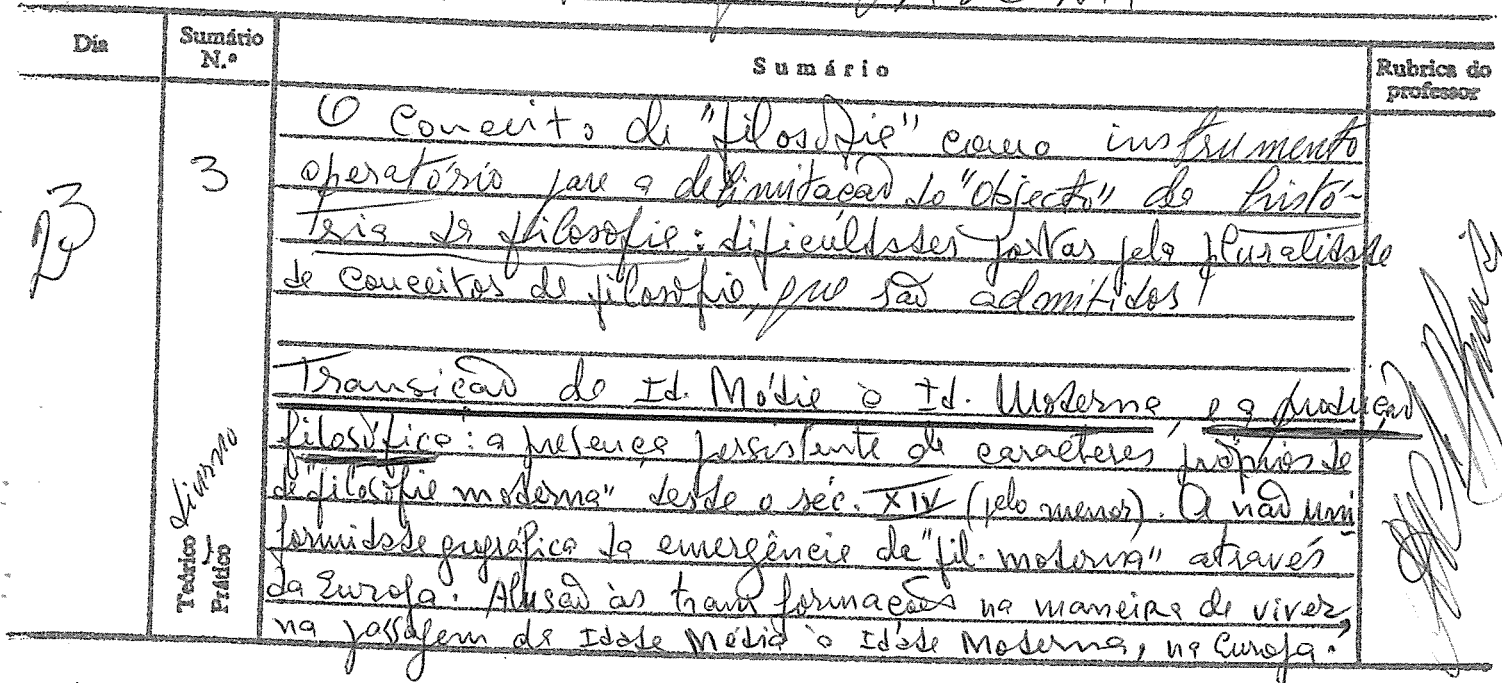 Dia
Sumário N.º
Sumário
Rubrica do professor
23
3
O conceito de "filosofia" como instrumento
operatório para a delimitação do "objecto" da histó-
ria da filosofia: dificuldades postas pela pluralidade
de conceitos de filosofia, que são admitidos!
Transição da Id. Média à Id. Moderna, e a produção
filosófica: a presença persistente de caracteres próprios da
"filosofia moderna" desde o séc. XIV (pelo menos). A não uni-
formidade geográfica da emergência da "fil. moderna" através
da Europa. Alusão às transformações na maneira de viver,
na passagem da Idade Média à Idade Moderna, na Europa.
Teórico
Prático